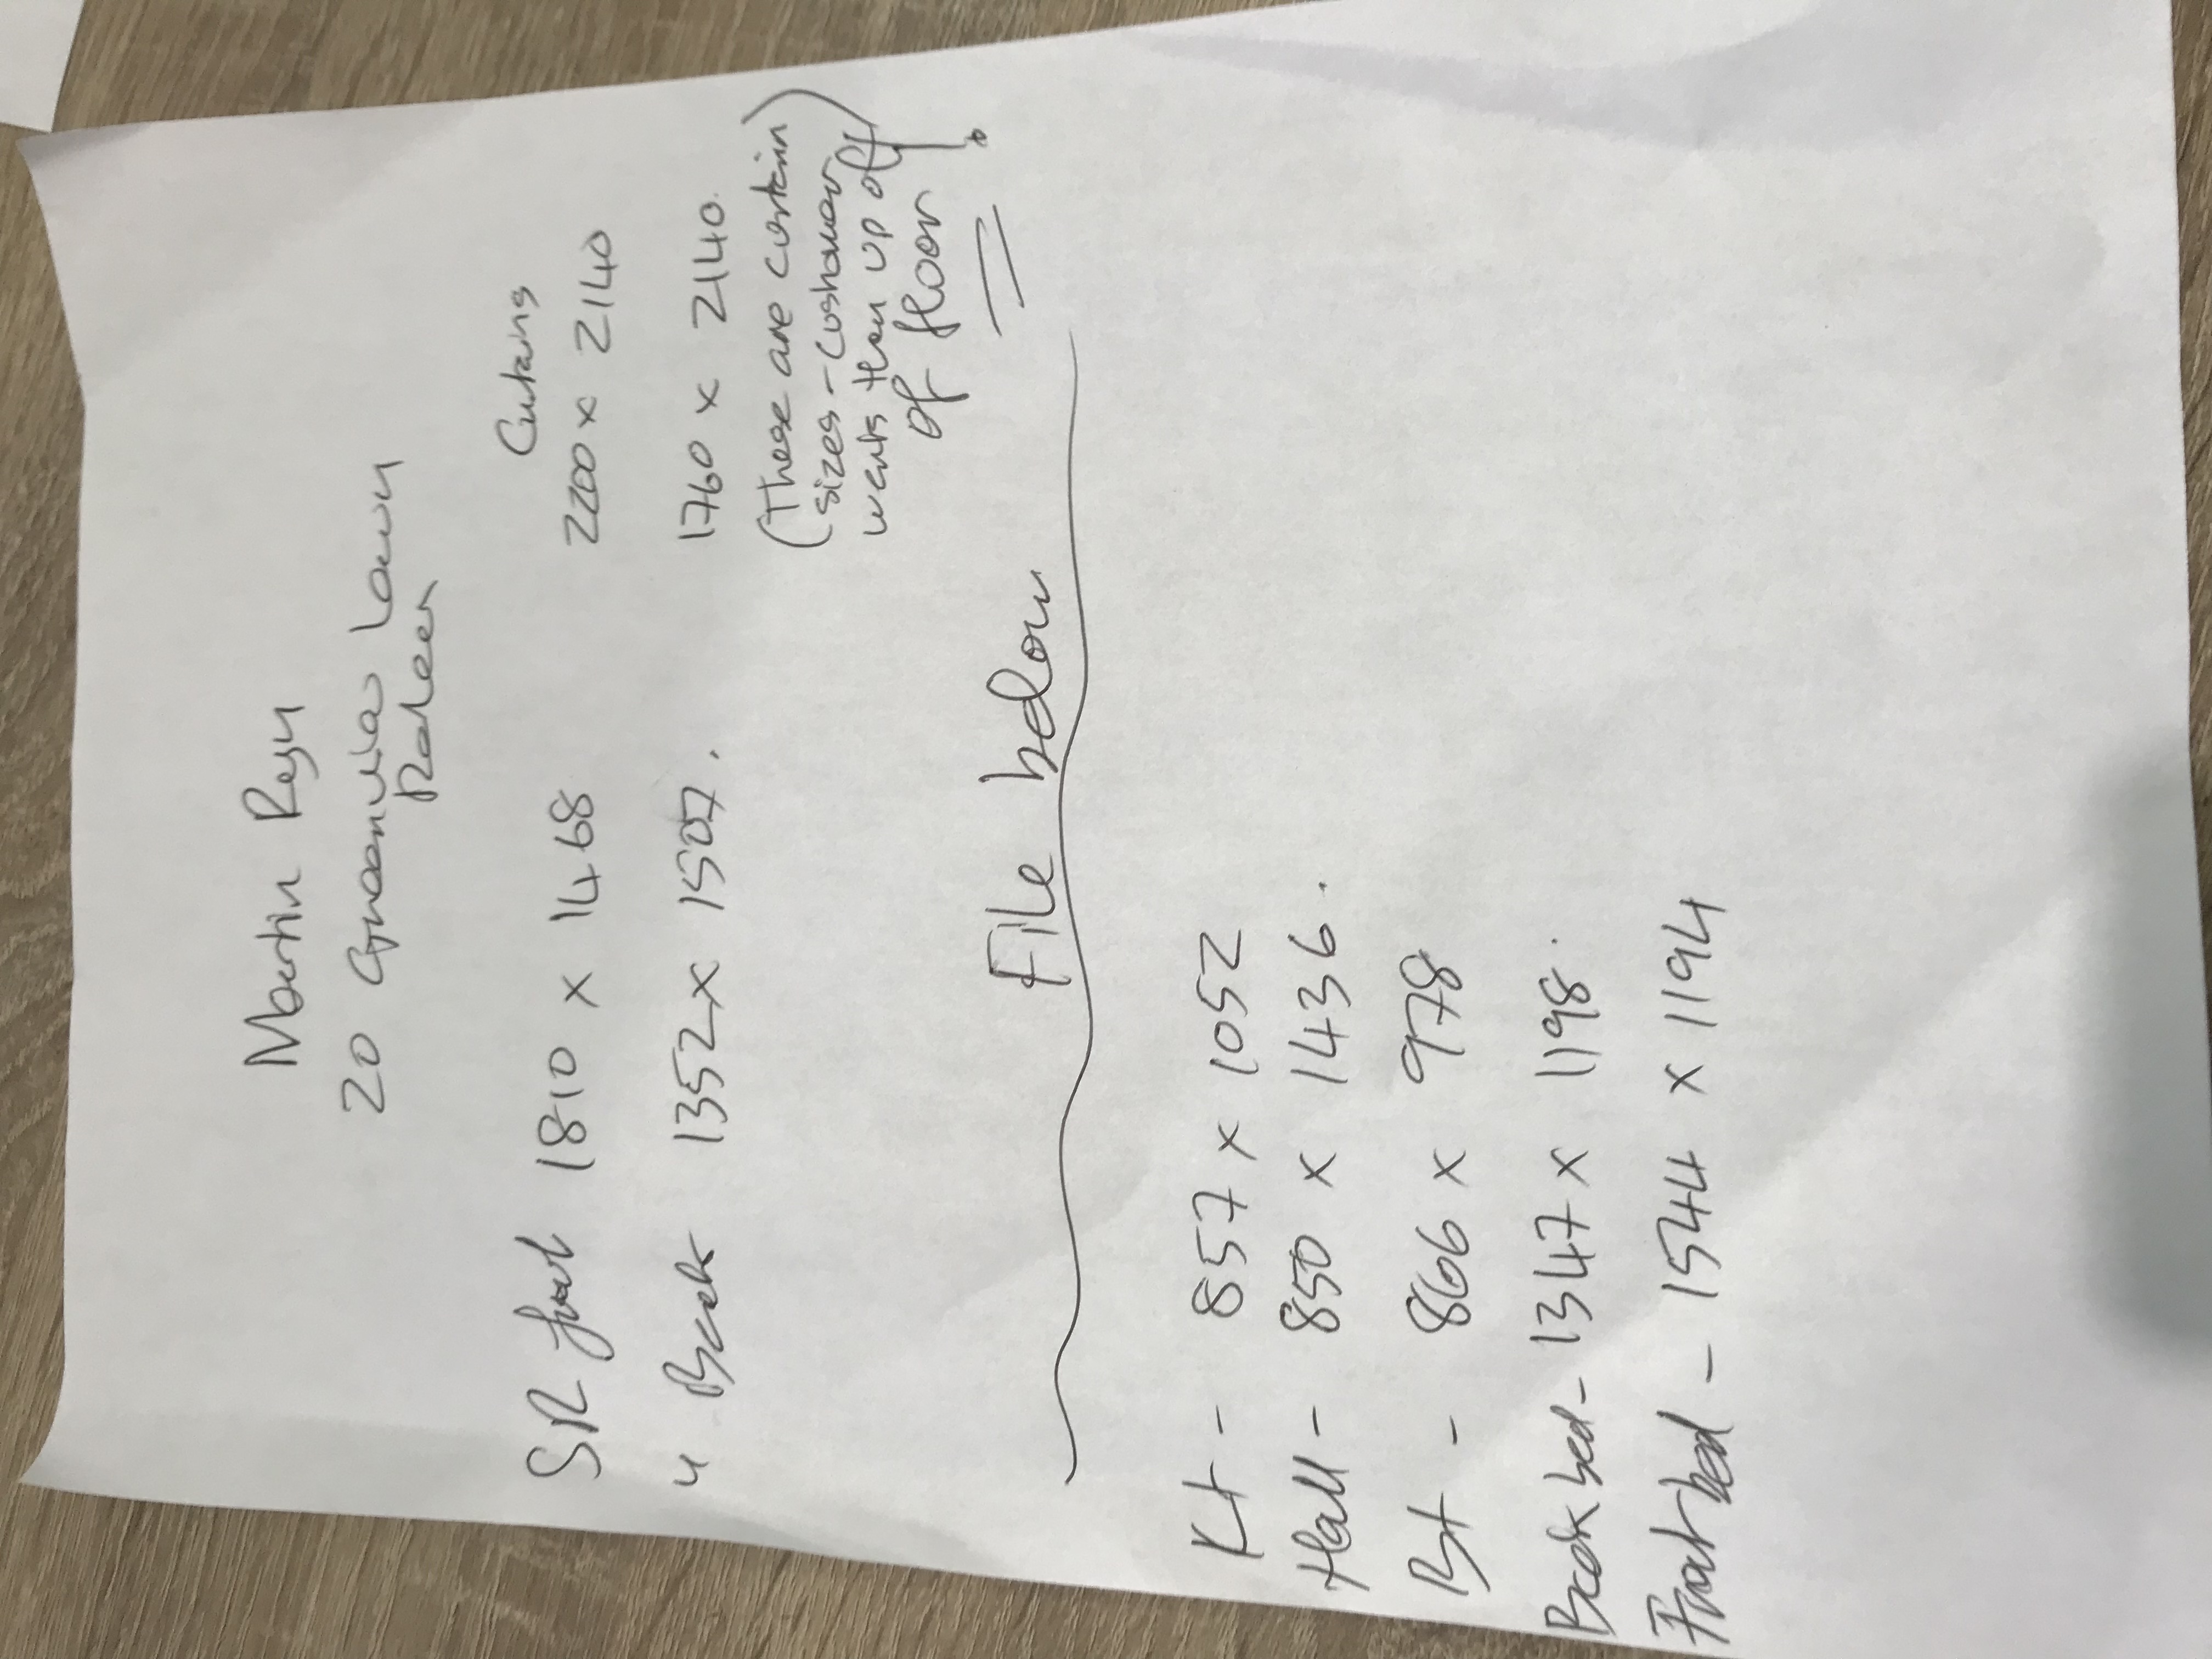 Martin Regn
20 Lawn
Curtains
SR front 1810 x 1468 2200 x 2140
" Back 1352 x 1507. 1760 x 2140.
(These are curtain)
(sizes - Coshomer
wants them up off)
of floor !
File below
Kt - 857 x 1052
Hall - 850 x 1436.
Bt - 866 x 978
Back bed - 1347 x 1198.
Front bed - 1544 x 1194